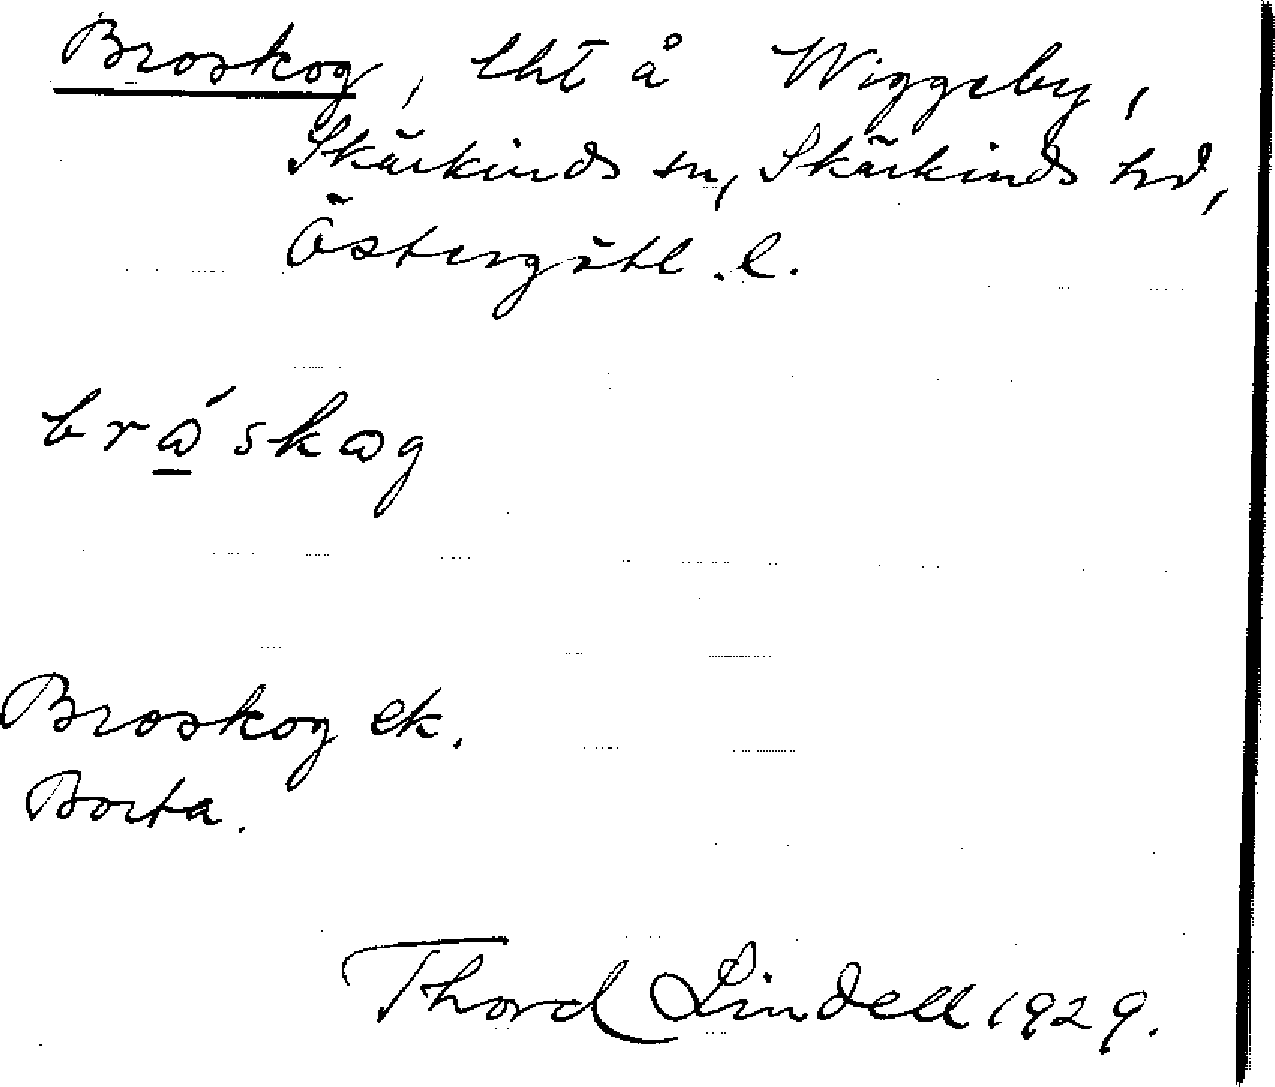 Broskog, lht å Wiggeby,
Skärkinds sn, Skärkinds hd,
Östergötl. l.
brꞷ̱́skꞷg
Broskog ek.
Borta.
Thord Lindell 1929.